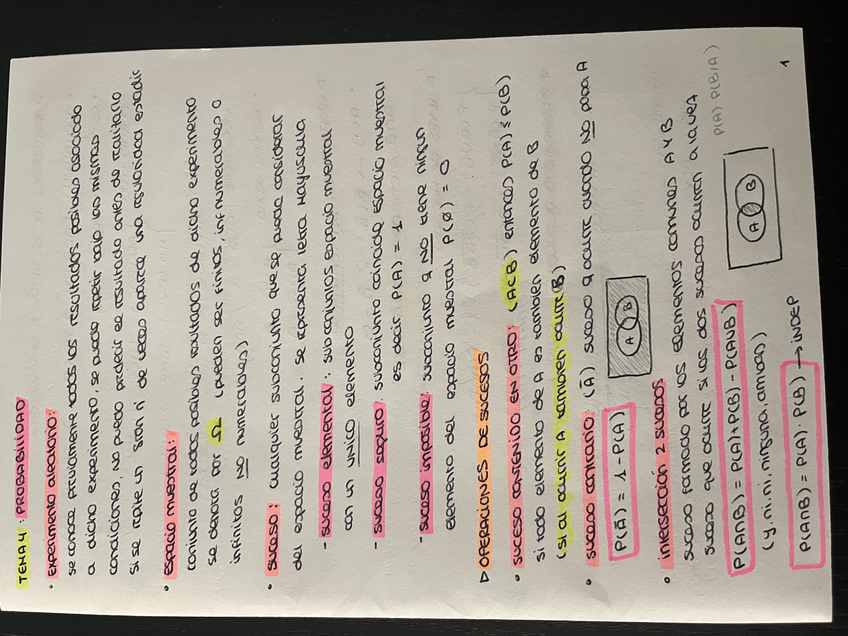 TEMA 4: PROBABILIDAD
• experimento aleatorio:
se conoce previamente todos los resultados posibles asociado
a dicho experimento, se puede repetir bajo las mismas
condiciones, no puedo predecir el resultado antes de realizarlo
si se repite un gran nº de veces aparece una regularidad estadís
• espacio muestral:
conjunto de todos posibles resultados de dicho experimento
se denota por Ω (pueden ser finitos, inf numerables o
infinitos NO numerables)
• suceso: cualquier subconjunto que se puede considerar
del espacio muestral. se representa letra mayúscula
- suceso elemental: subconjuntos espacio muestral
con un UNICO elemento
- suceso seguro: subconjunto coincide espacio muestral
es decir P(A) = 1
- suceso imposible: subconjunto q NO tiene ningun
elemento del espacio muestral P(Ø) = 0
▷ OPERACIONES DE SUCESOS
• SUCESO CONTENIDO EN OTRO: (A⊂B) entonces P(A) ≤ P(B)
si todo elemento de A es también elemento de B
(si al ocurrir A también ocurre B)
• suceso contrario: (Ā) suceso q ocurre cuando NO pasa A
P(Ā) = 1 - P(A)
A B
• intersección 2 sucesos
suceso formado por los elementos comunes A y B
suceso que ocurre si los dos sucesos ocurren a la vez
P(A∩B) = P(A) + P(B) - P(A∪B)
P(A) P(B/A)
(y, ni.ni, ninguna, ambas)
A B
P(A∩B) = P(A) · P(B) → INDEP
1